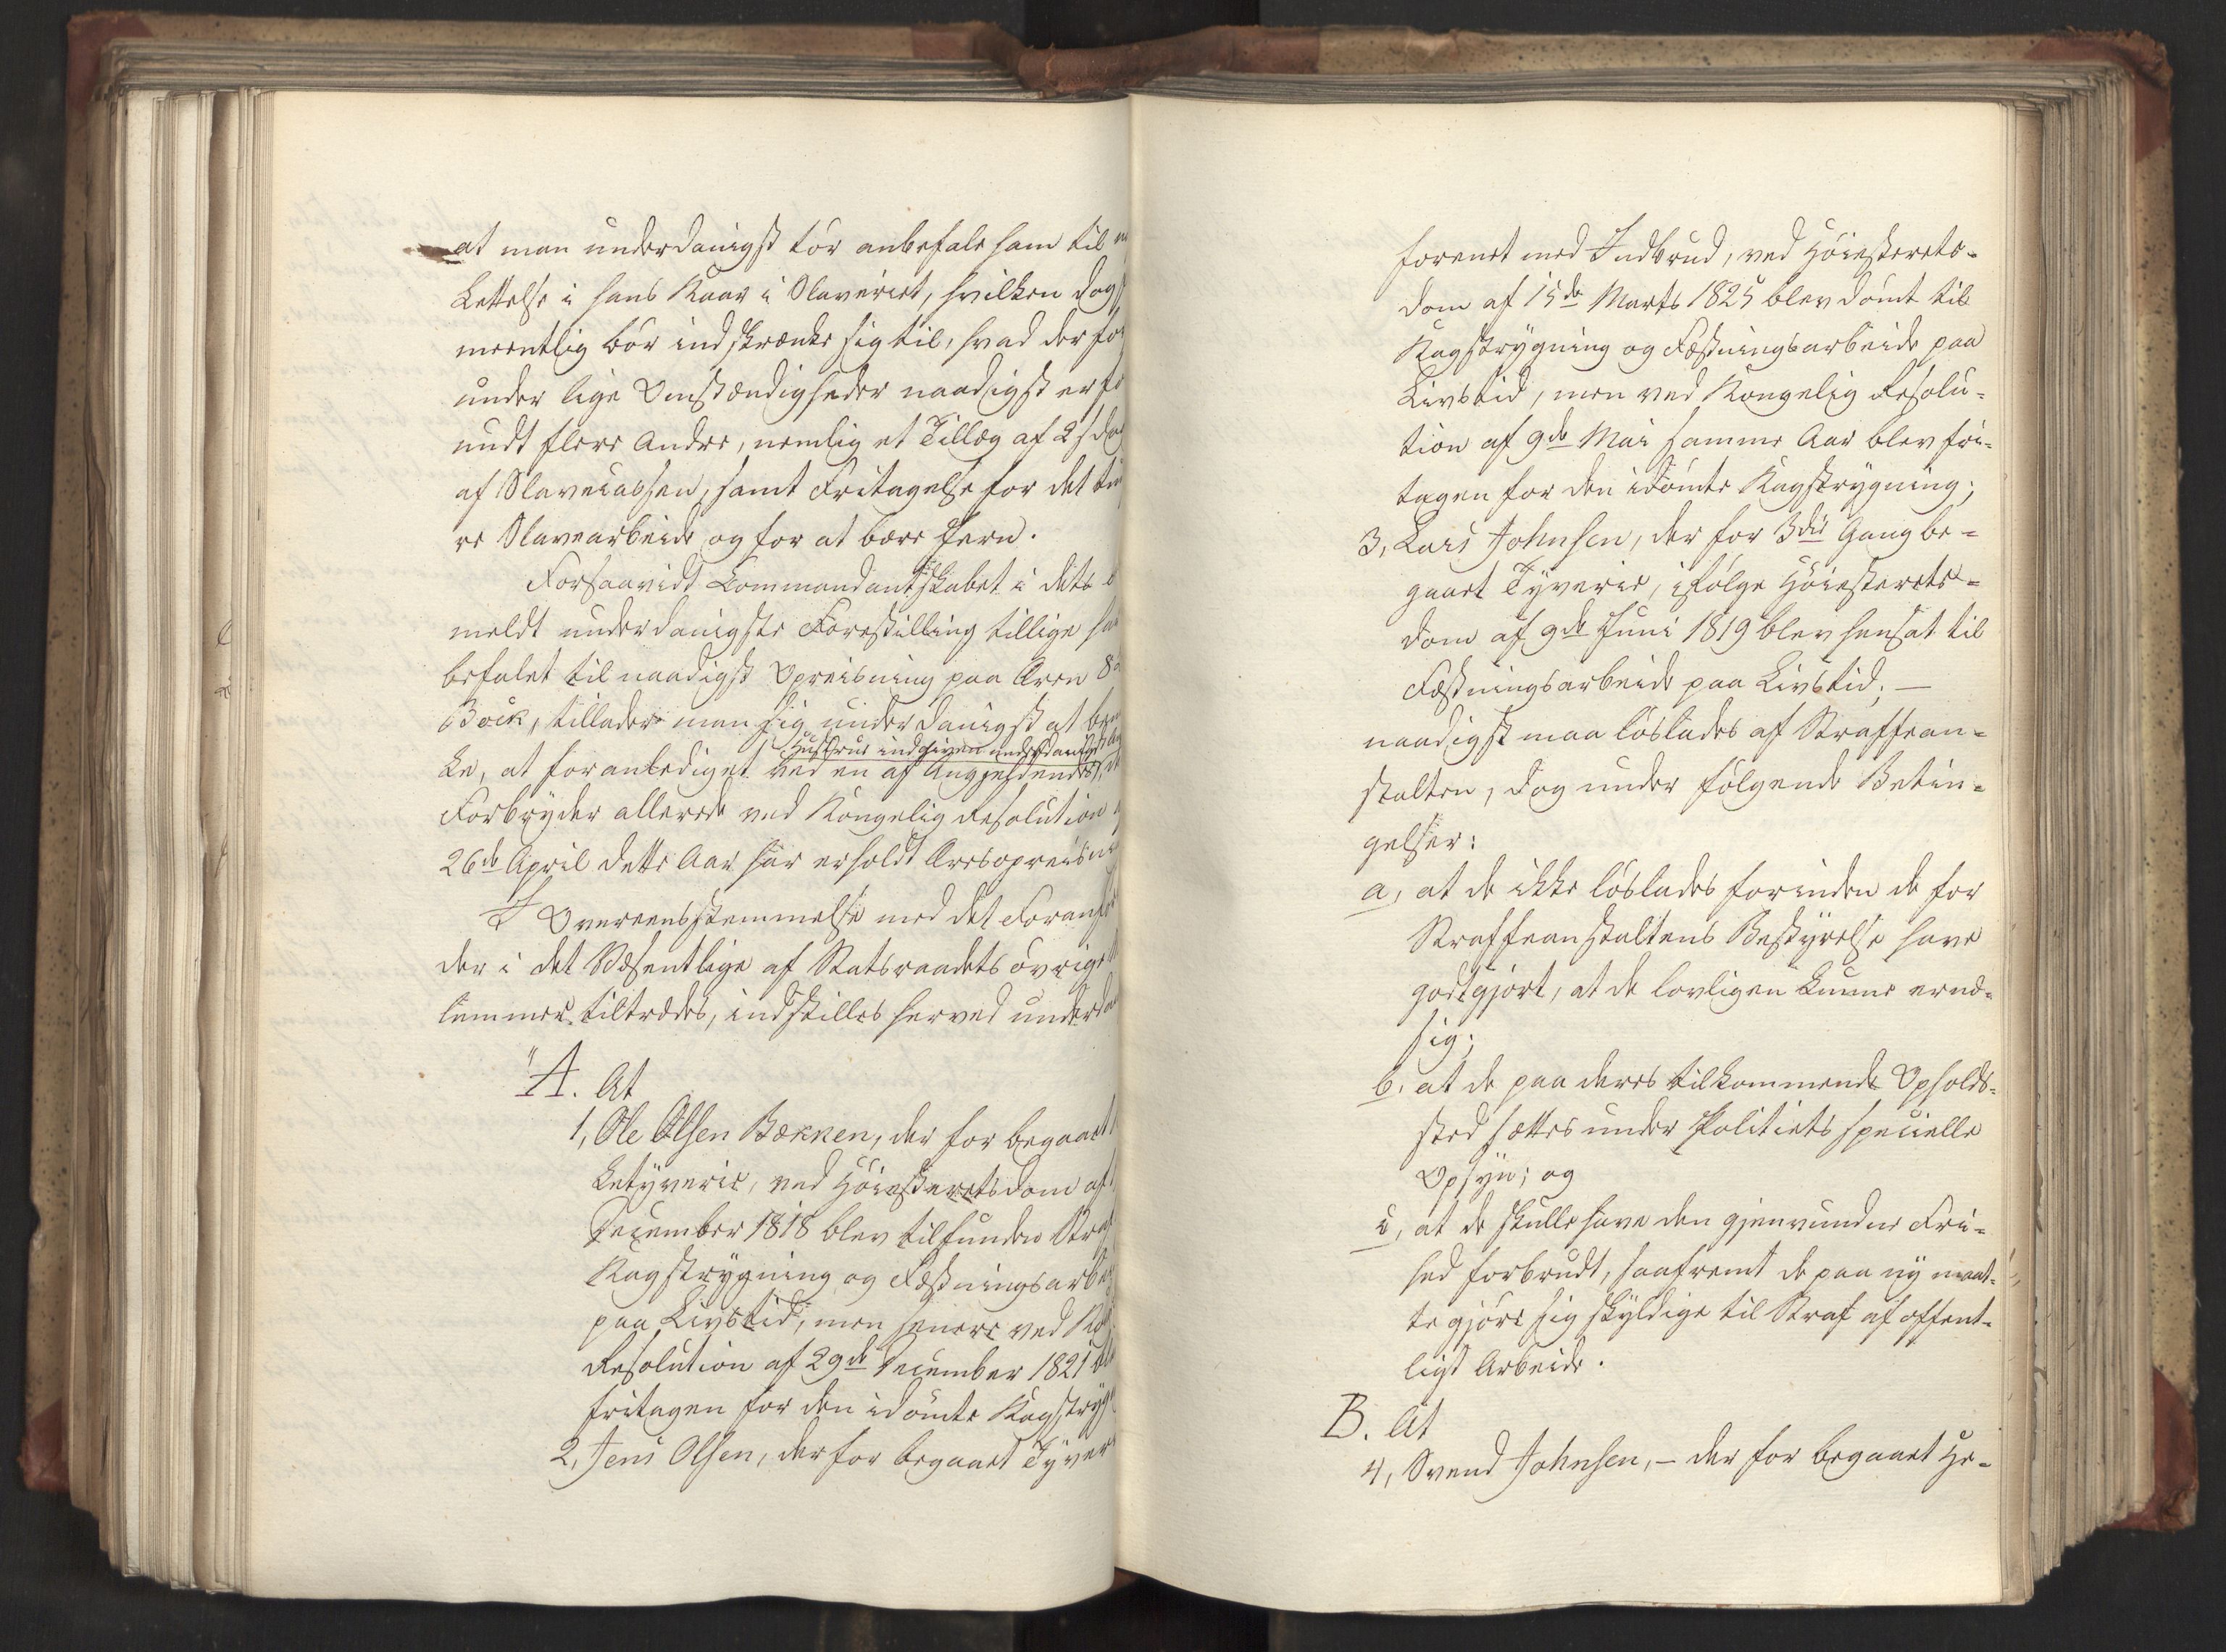 at man underdanigst tör anbefale ham til
Lettelse i hans Kaar i Slaveriet, hvilken dog
meentlig bör indskrænke sig til, hvad der
under lige Omstændigheder naadigst er
undt flere Andre, nemlig et Tillæg af 2 s
af Slavecassen, samt Fritagelse for det
re Slavearbeide og for at bære Jern.
Forsaavidt Commandantskabet i dets
meldt underdanigste Forestilling tillige
befalet til naadigst Opreisning paa Æren
Bock, tillader man sig underdanigst at
Hustrue indgiven underdanigst
ke, at foranlediget ved en af Angjeldendes,
Forbryder allerede ved Kongelig Resolution
26de April dette Aar har erholdt Æresopreisni
I Overeensstemmelse med det
der i det Væsentlige af Statsraadets övrige
lemmer tiltrædes, indstilles herved
"A. At
1, Ole Olsen Bækken, der for begaaet
ketyverie, ved Höiesteretsdom af
December 1818 blev tilfunden
Kagstrygning og Fæstningsarb
paa Livstid, men senere ved
Resolution af 29de December 1821
fritagen for den idömte Kagstryg
2, Jens Olsen, der for begaaet Tyver
forenet med Indbrud, ved Höiesterets-
dom af 15de Marts 1825 blev dömt til
Kagstrygning og Fæstningsarbeide paa
Livstid, men ved Kongelig Resolu-
tion af 9de Mai samme Aar blev fri-
tagen for den idömte Kagstrygning;
3, Lars Johnsen, der for 3die Gang be-
gaaet Tyverie, ifölge Höiesterets-
dom af 9de Juni 1819 blev hensat til
Fæstningsarbeide paa Livstid; —
naadigst maa löslades af Straffean-
stalten, dog under fölgende Betin-
gelser:
a, at de ikke löslades forinden de for
Straffeanstaltens Bestyrelse have
godtgjort, at de lovligen kunne ernæ-
sig;
b. at de paa deres tilkommende Opholds-
sted sættes under Politiets specielle
Opsyn; og
c, at de skulle have den gjenvundne Fri-
hed forbrudt, saafremt de paa ny maat-
te gjöre sig skyldige til Straf af offent-
ligt Arbeide.
B. At
4, Svend Johnsen, - der for begaaet He-